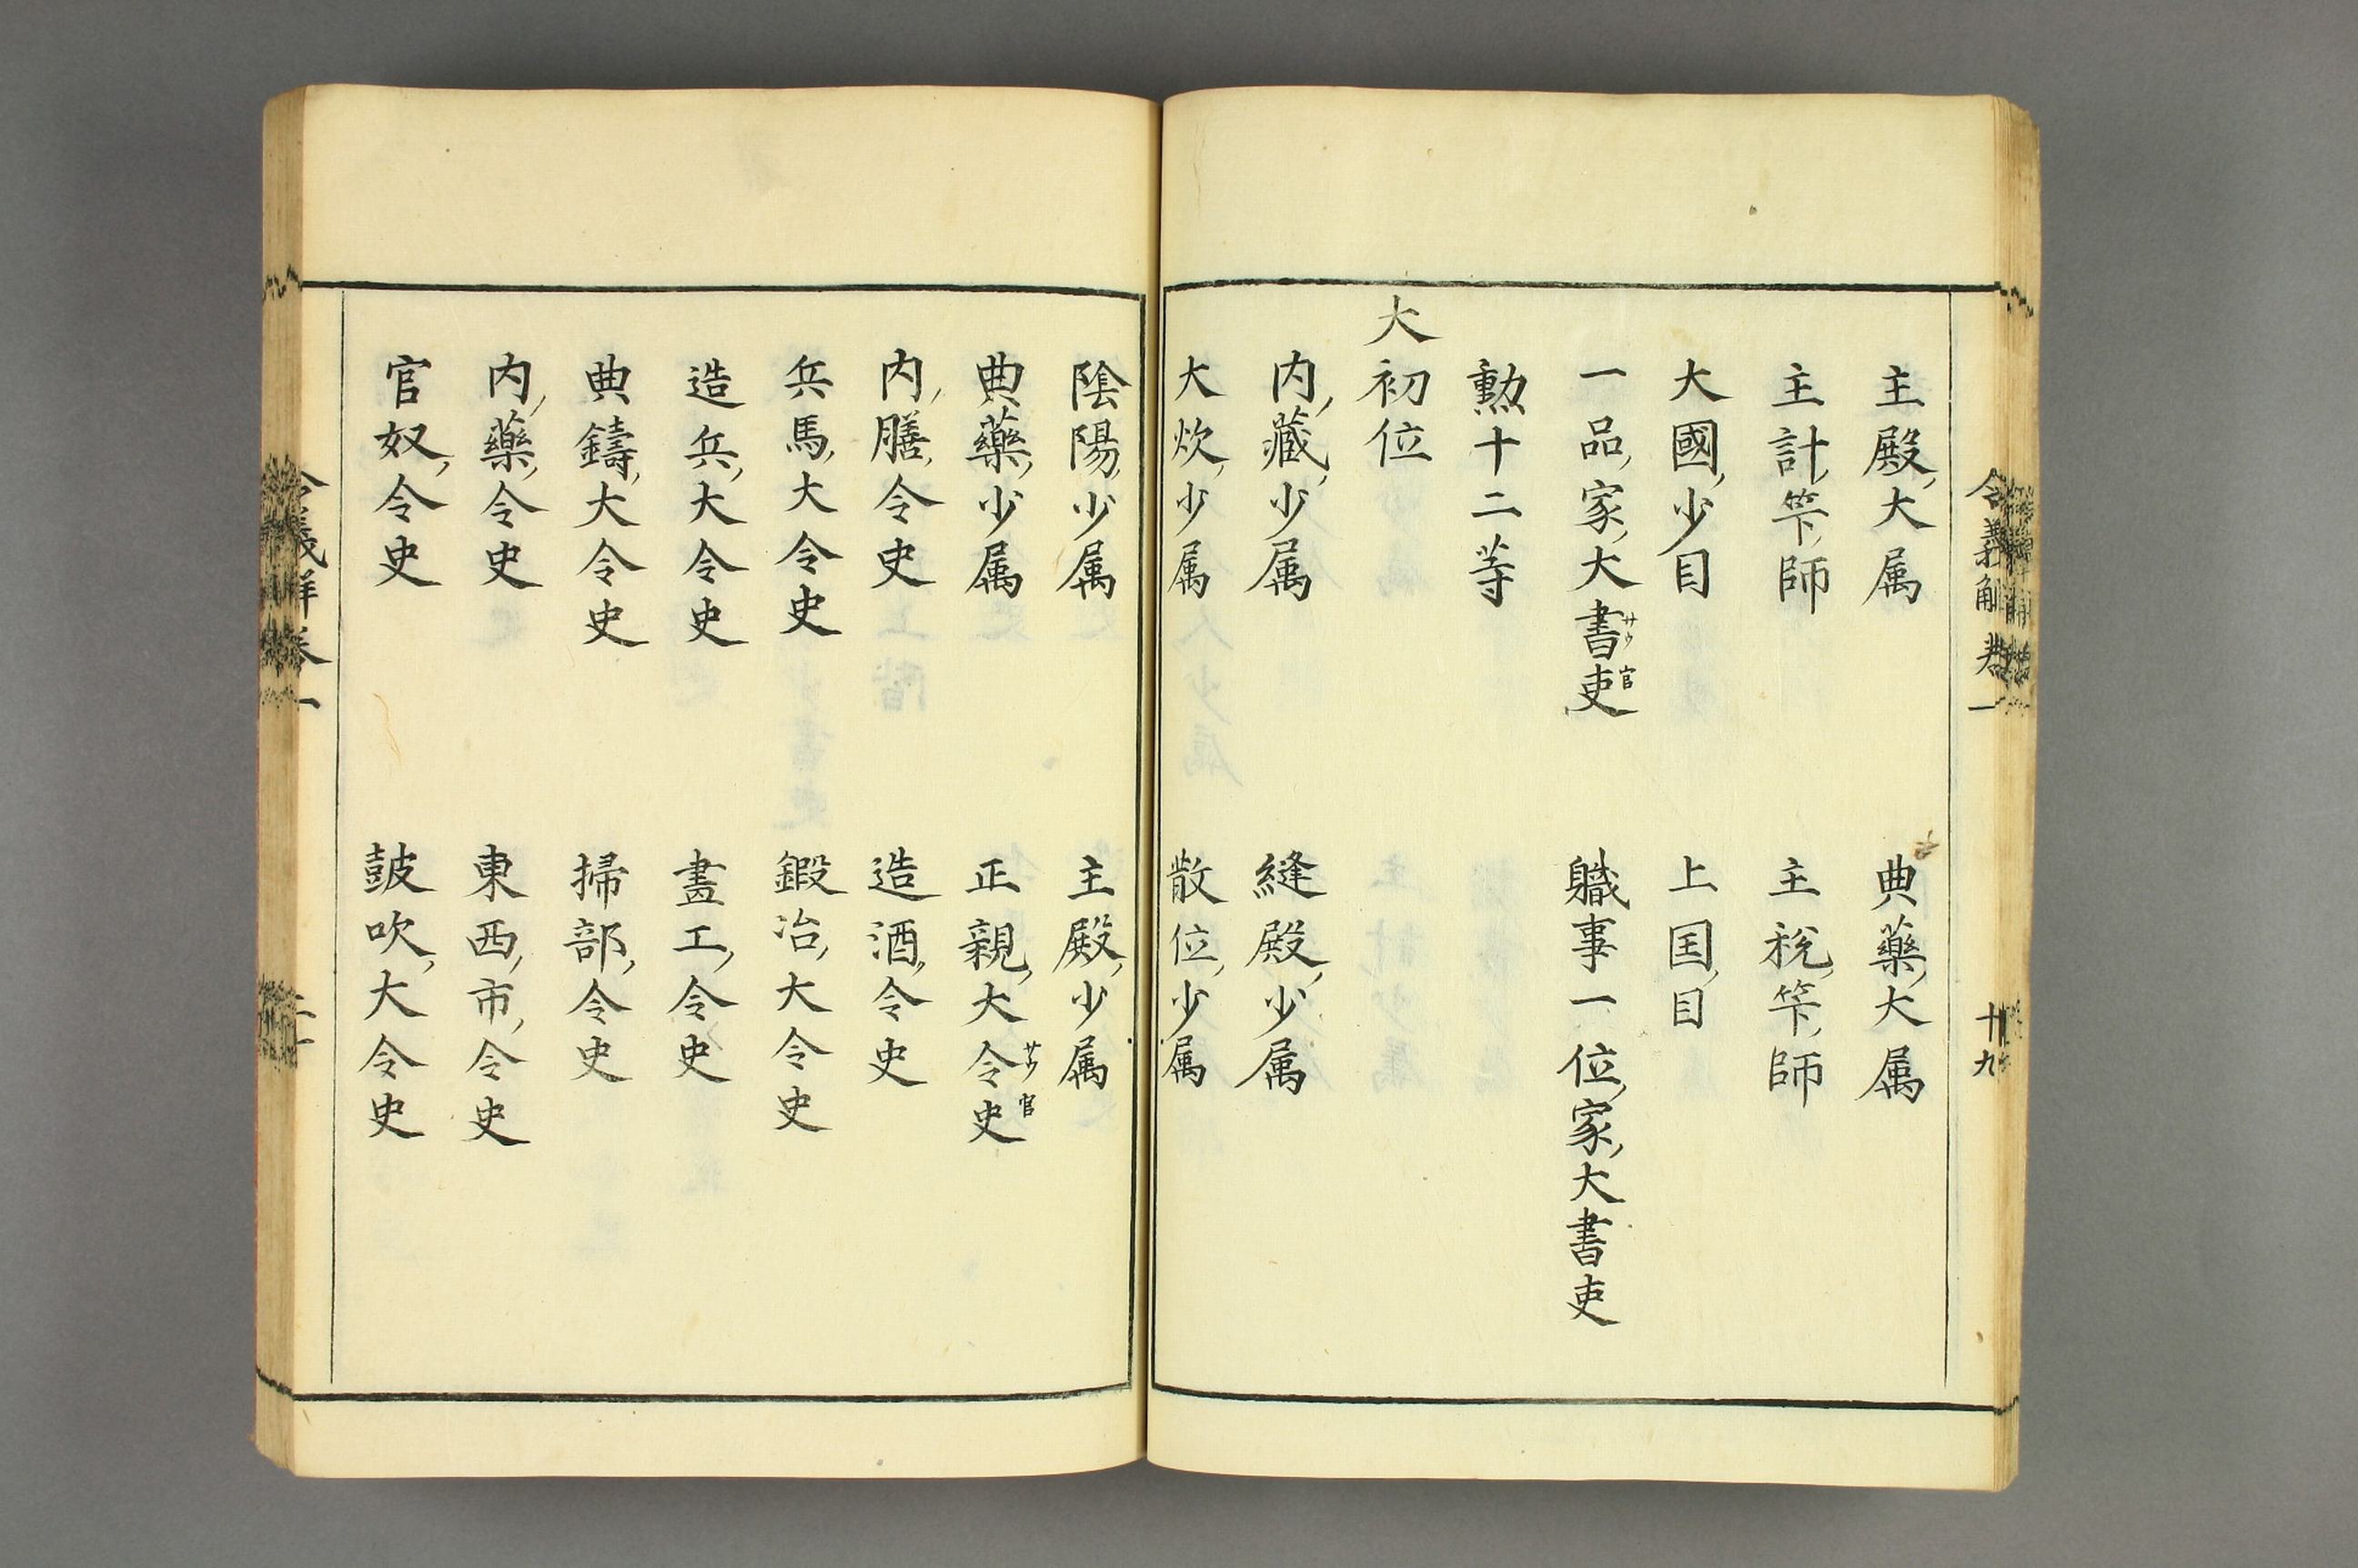 主殿大属　典藥大属
主計笇師　主税笇師
大國少目　上囯目
一品家大書吏サウ官　軄事一位家大書吏
勲十二等
大初位
内藏少属　縫殿少属
大炊少属　散位少属
令義解卷一　十九
陰陽少属　主殿少属
典藥少属　正親大令史サウ官
内膳令史　造酒令史
兵馬大令史　鍛冶大令史
造兵大令史　畫工令史
典鑄大令史　掃部令史
内藥令史　東西市令史
官奴令史　鼓吹大令史
令義解卷一